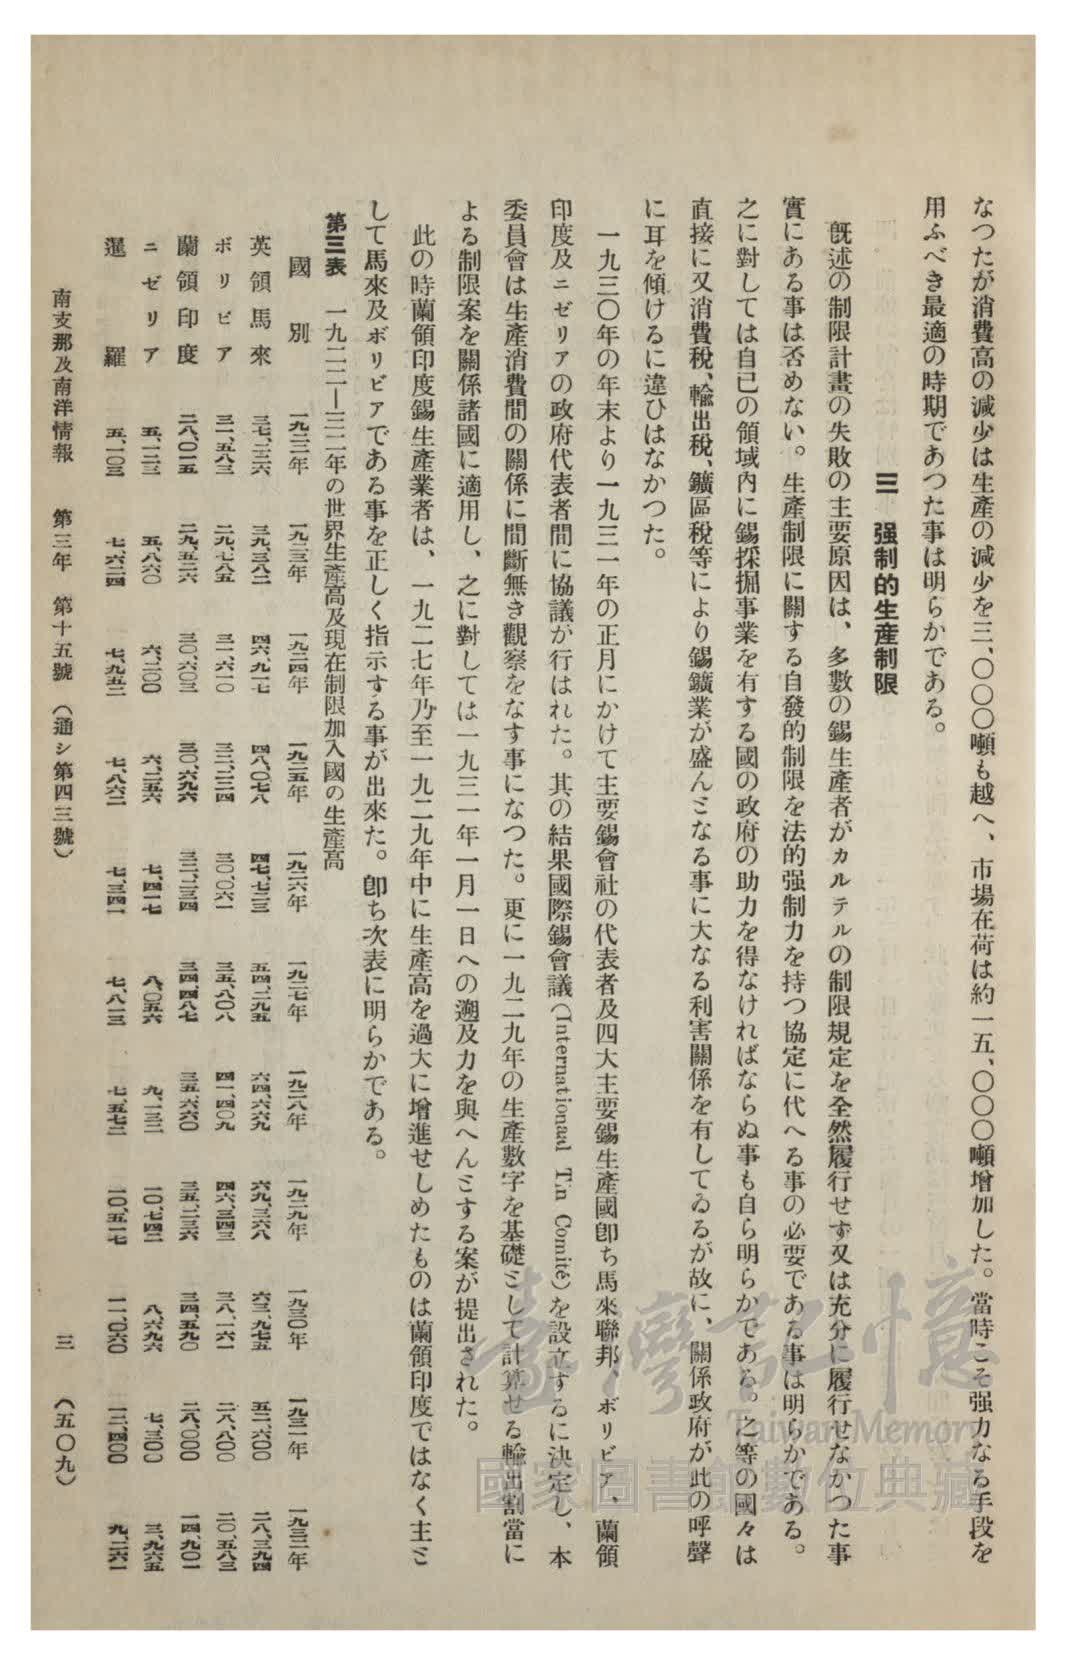 なつたが消費高の減少は生產の減少を三、〇〇〇噸も越へ、市場在荷は約一五、〇〇〇噸增加した。當時こそ强力なる手段を
用ふべき最適の時期であつた事は明らかである。
三 强制的生產制限
旣述の制限計畫の失敗の主要原因は、多數の錫生產者がカルテルの制限規定を全然履行せず又は充分に履行せなかつた事
實にある事は否めない。生產制限に關する自發的制限を法的强制力を持つ協定に代へる事の必要である事は明らかである。
之に對しては自己の領域內に錫採掘事業を有する國の政府の助力を得なければならぬ事も自ら明らかである。之等の國々は
直接に又消費稅、輸出稅、鑛區稅等により錫鑛業が盛んとなる事に大なる利害關係を有してゐるが故に、關係政府が此の呼聲
に耳を傾けるに違ひはなかつた。
一九三〇年の年末より一九三一年の正月にかけて主要錫會社の代表者及四大主要錫生產國卽ち馬來聯邦、ボリビア、蘭領
印度及ニゼリアの政府代表者間に協議が行はれた。其の結果國際錫會議(Internationaal Tin Comité)を設立するに決定し、本
委員會は生產消費間の關係に間斷無き觀察をなす事になつた。更に一九二九年の生產數字を基礎として計算せる輸出割當に
よる制限案を關係諸國に適用し、之に對しては一九三一年一月一日への遡及力を與へんとする案が提出された。
此の時蘭領印度錫生產業者は、一九二七年乃至一九二九年中に生產高を過大に增進せしめたものは蘭領印度ではなく主と
して馬來及ボリビアである事を正しく指示する事が出來た。卽ち次表に明らかである。
第三表 一九二二—三二年の世界生產高及現在制限加入國の生產高
國別 一九二二年 一九二三年 一九二四年 一九二五年 一九二六年 一九二七年 一九二八年 一九二九年 一九三〇年 一九三一年 一九三二年
英領馬來 三七、二三六 三九、三八二 四六、九一七 四八、〇七八 四七、七二三 五四、二九五 六四、六六九 六九、三六八 六三、九七五 五二、六〇〇 二八、三九四
ボリビア 三一、五八三 二九、七八五 三一、六一〇 三二、二二四 三〇、〇六一 三五、八〇八 四一、四〇九 四六、三四三 三八、一六一 二八、八〇〇 二〇、五八三
蘭領印度 二八、〇一五 二九、五二六 三〇、六〇三 三〇、六九六 三二、二三四 三四、四八七 三五、六六〇 三五、二三六 三四、五九〇 二八、〇〇〇 一四、九〇一
ニゼリア 五、一二三 五、八六〇 六、二〇〇 六、二五六 七、四一七 八、〇五六 九、一三二 一〇、七四二 八、六九六 七、三〇〇 三、九六五
暹羅 五、一〇三 七、六二四 七、九五二 七、八六二 七、三四一 七、八一三 七、五七二 一〇、五一七 一一、〇六〇 一二、四〇〇 九、二六一
南支那及南洋情報 第三年 第十五號(通シ第四三號) 三 (五〇九)
臺灣記憶
Taiwan Memory
國家圖書館數位典藏